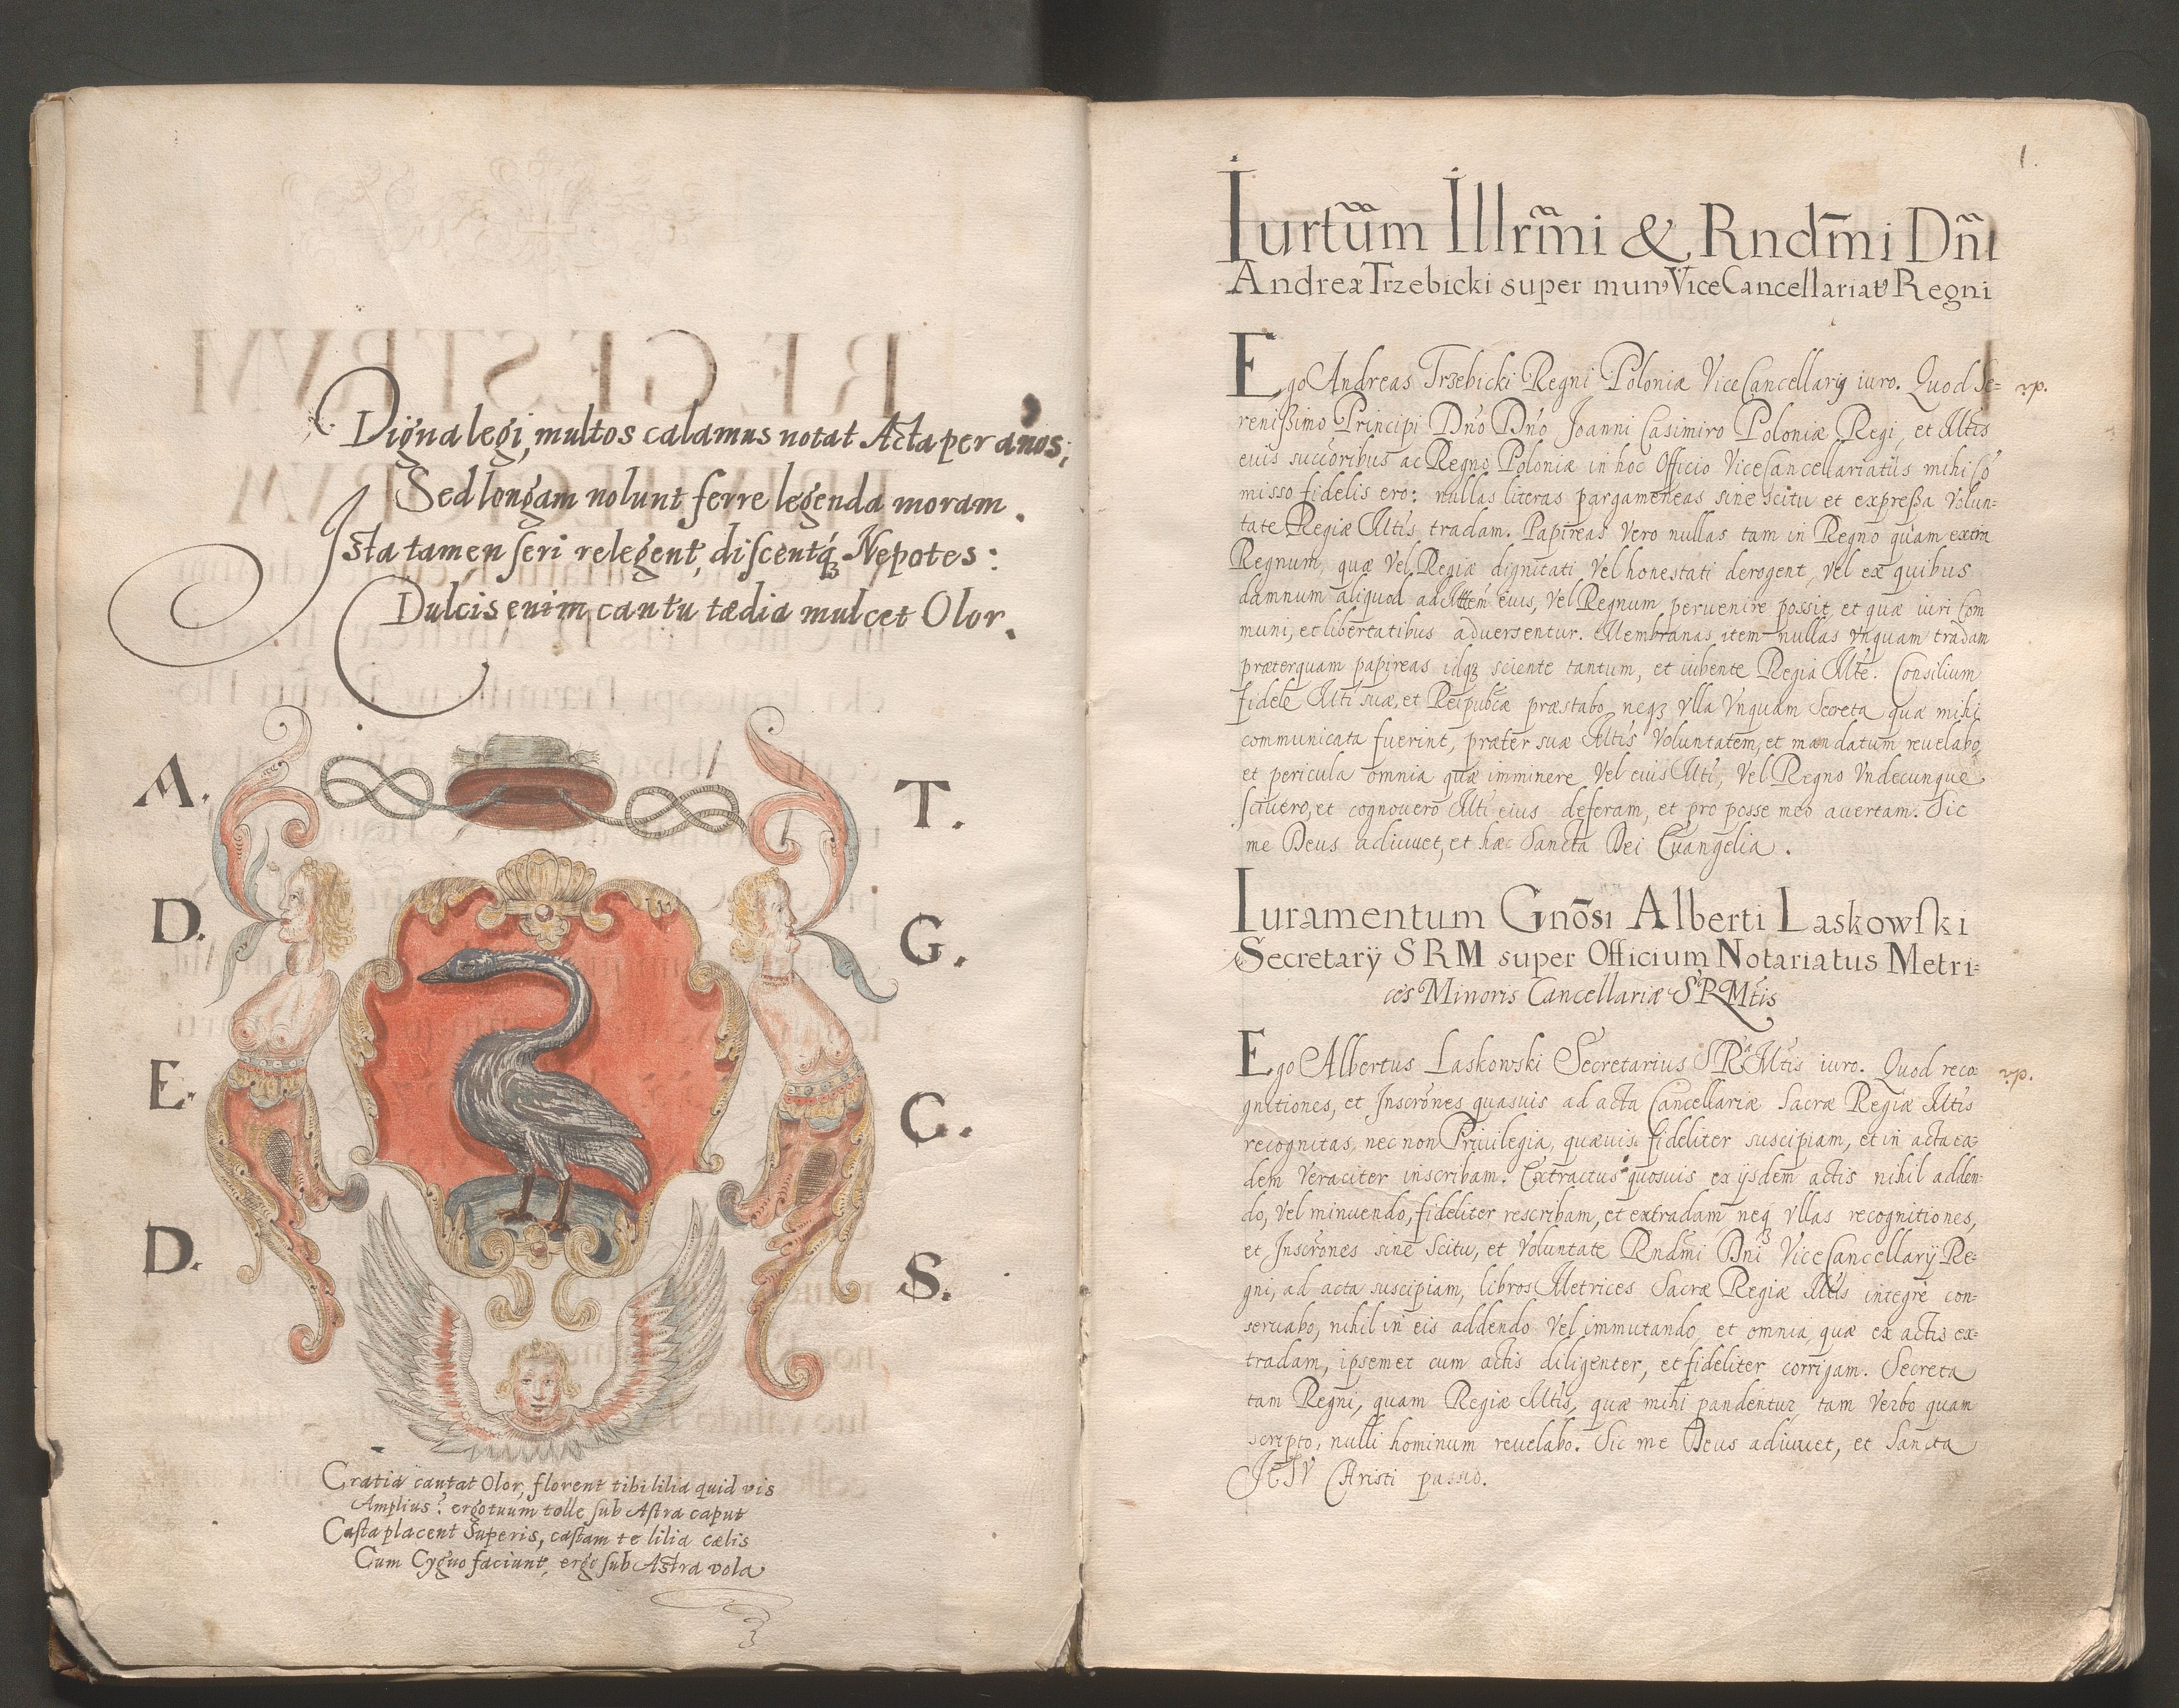 Digna legi, multos calamus notat Acta per años;
Sed longam nolunt ferre legenda moram.
Ista tamen seri relegent, discentq́ꝫ Nepotes:
Dulcis enim cantu tædia mulcet Olor.
A. T.
D. G.
E. C.
D. S.
Gratia cantat Olor, florent tibi lilia quid vis
Amplius? ergo tuum tolle sub Astra caput
Casta placent Superis, castam te lilia cælis
Cum Cygno faciunt, ergo sub Astra vola
1.
Iurtũm Illrm̃i & Rndm̃i Dñi
Andreæ Trzebicki super mun9 Vice Cancellariat9 Regni
Ego Andreas Trzebicki Regni Poloniæ ViceCancellarig iuro. Quod Se=
renißimo Principi Dño Dño Joanni Casimiro Poloniæ Regi, et Mtis
euis succoribus ac Regno Poloniæ in hoc Officio ViceCancellariatüs mihi cõ
misso fidelis ero: nullas literas pargameneas sine scitu et expreßa Volun=
tate Regiæ Mtis tradam. Papireas Vero nullas tam in Regno quàm extra
Regnum, quæ Vel Regiæ dignitati Vel honestati derogent, Vel ex quibus
damnum aliquod ad Mttem eius, Vel Regnum peruenire possit, et quæ iuri Com
muni, et libertatibus aduersentur. Membranas item nullas Vnquam tradam
præterquam papireas idqꝫ sciente tantum, et iubente Regia Mte. Consilium
fidele Mti suæ, et Reipubcæ præstabo neqꝫ Vlla Vnquam Secreta quæ mihi
communicata fuerint, præter suæ Mtis Voluntatem, et mandatum reuelabo,
et pericula omnia quæ imminere Vel eius Mti, Vel Regno Vndecunque
scivero, et cognouero Mti eius deferam, et pro posse meo auertam. Sic
me Deus adiuuet, et hæc Sancta Dei Euangelia.
Iuramentum Gnõsi Alberti Laskowski
Secretarÿ S R M super Officium Notariatus Metri=
ces Minoris Cancellariæ S R Mtis
Ego Albertus Laskowski Secretarius S R Mtis iuro. Quod reco=
gnitiones, et Inscrõnes quasuis ad acta Cancellariæ Sacræ Regiæ Mtis
recognitas nec non Priuilegia, quæuis fideliter suscipiam, et in acta ea=
dem Veraciter inscribam. Extractus quosuis ex ijsdem actis nihil adden=
do, Vel minuendo, fideliter rescribam, et extradam neqꝫ Vllas recognitiones,
et Inscrõnes sine Scitu, et Voluntate Rndmi Dni ViceCancellarÿ Re=
gni, ad acta suscipiam, libros Metrices Sacræ Regiæ Mtis integrè con=
seruabo, nihil in eis addendo Vel immutando, et omnia quæ ex actis ex=
tradam, ipsemet cum actis diligenter, et fideliter corrigam. Secreta
tam Regni, quam Regiæ Mtis, quæ mihi pandentur, tam Verbo quam
scripto, nulli hominum reuelabo. Sic me Deus adiuuet, et Sancta
Christi passio.